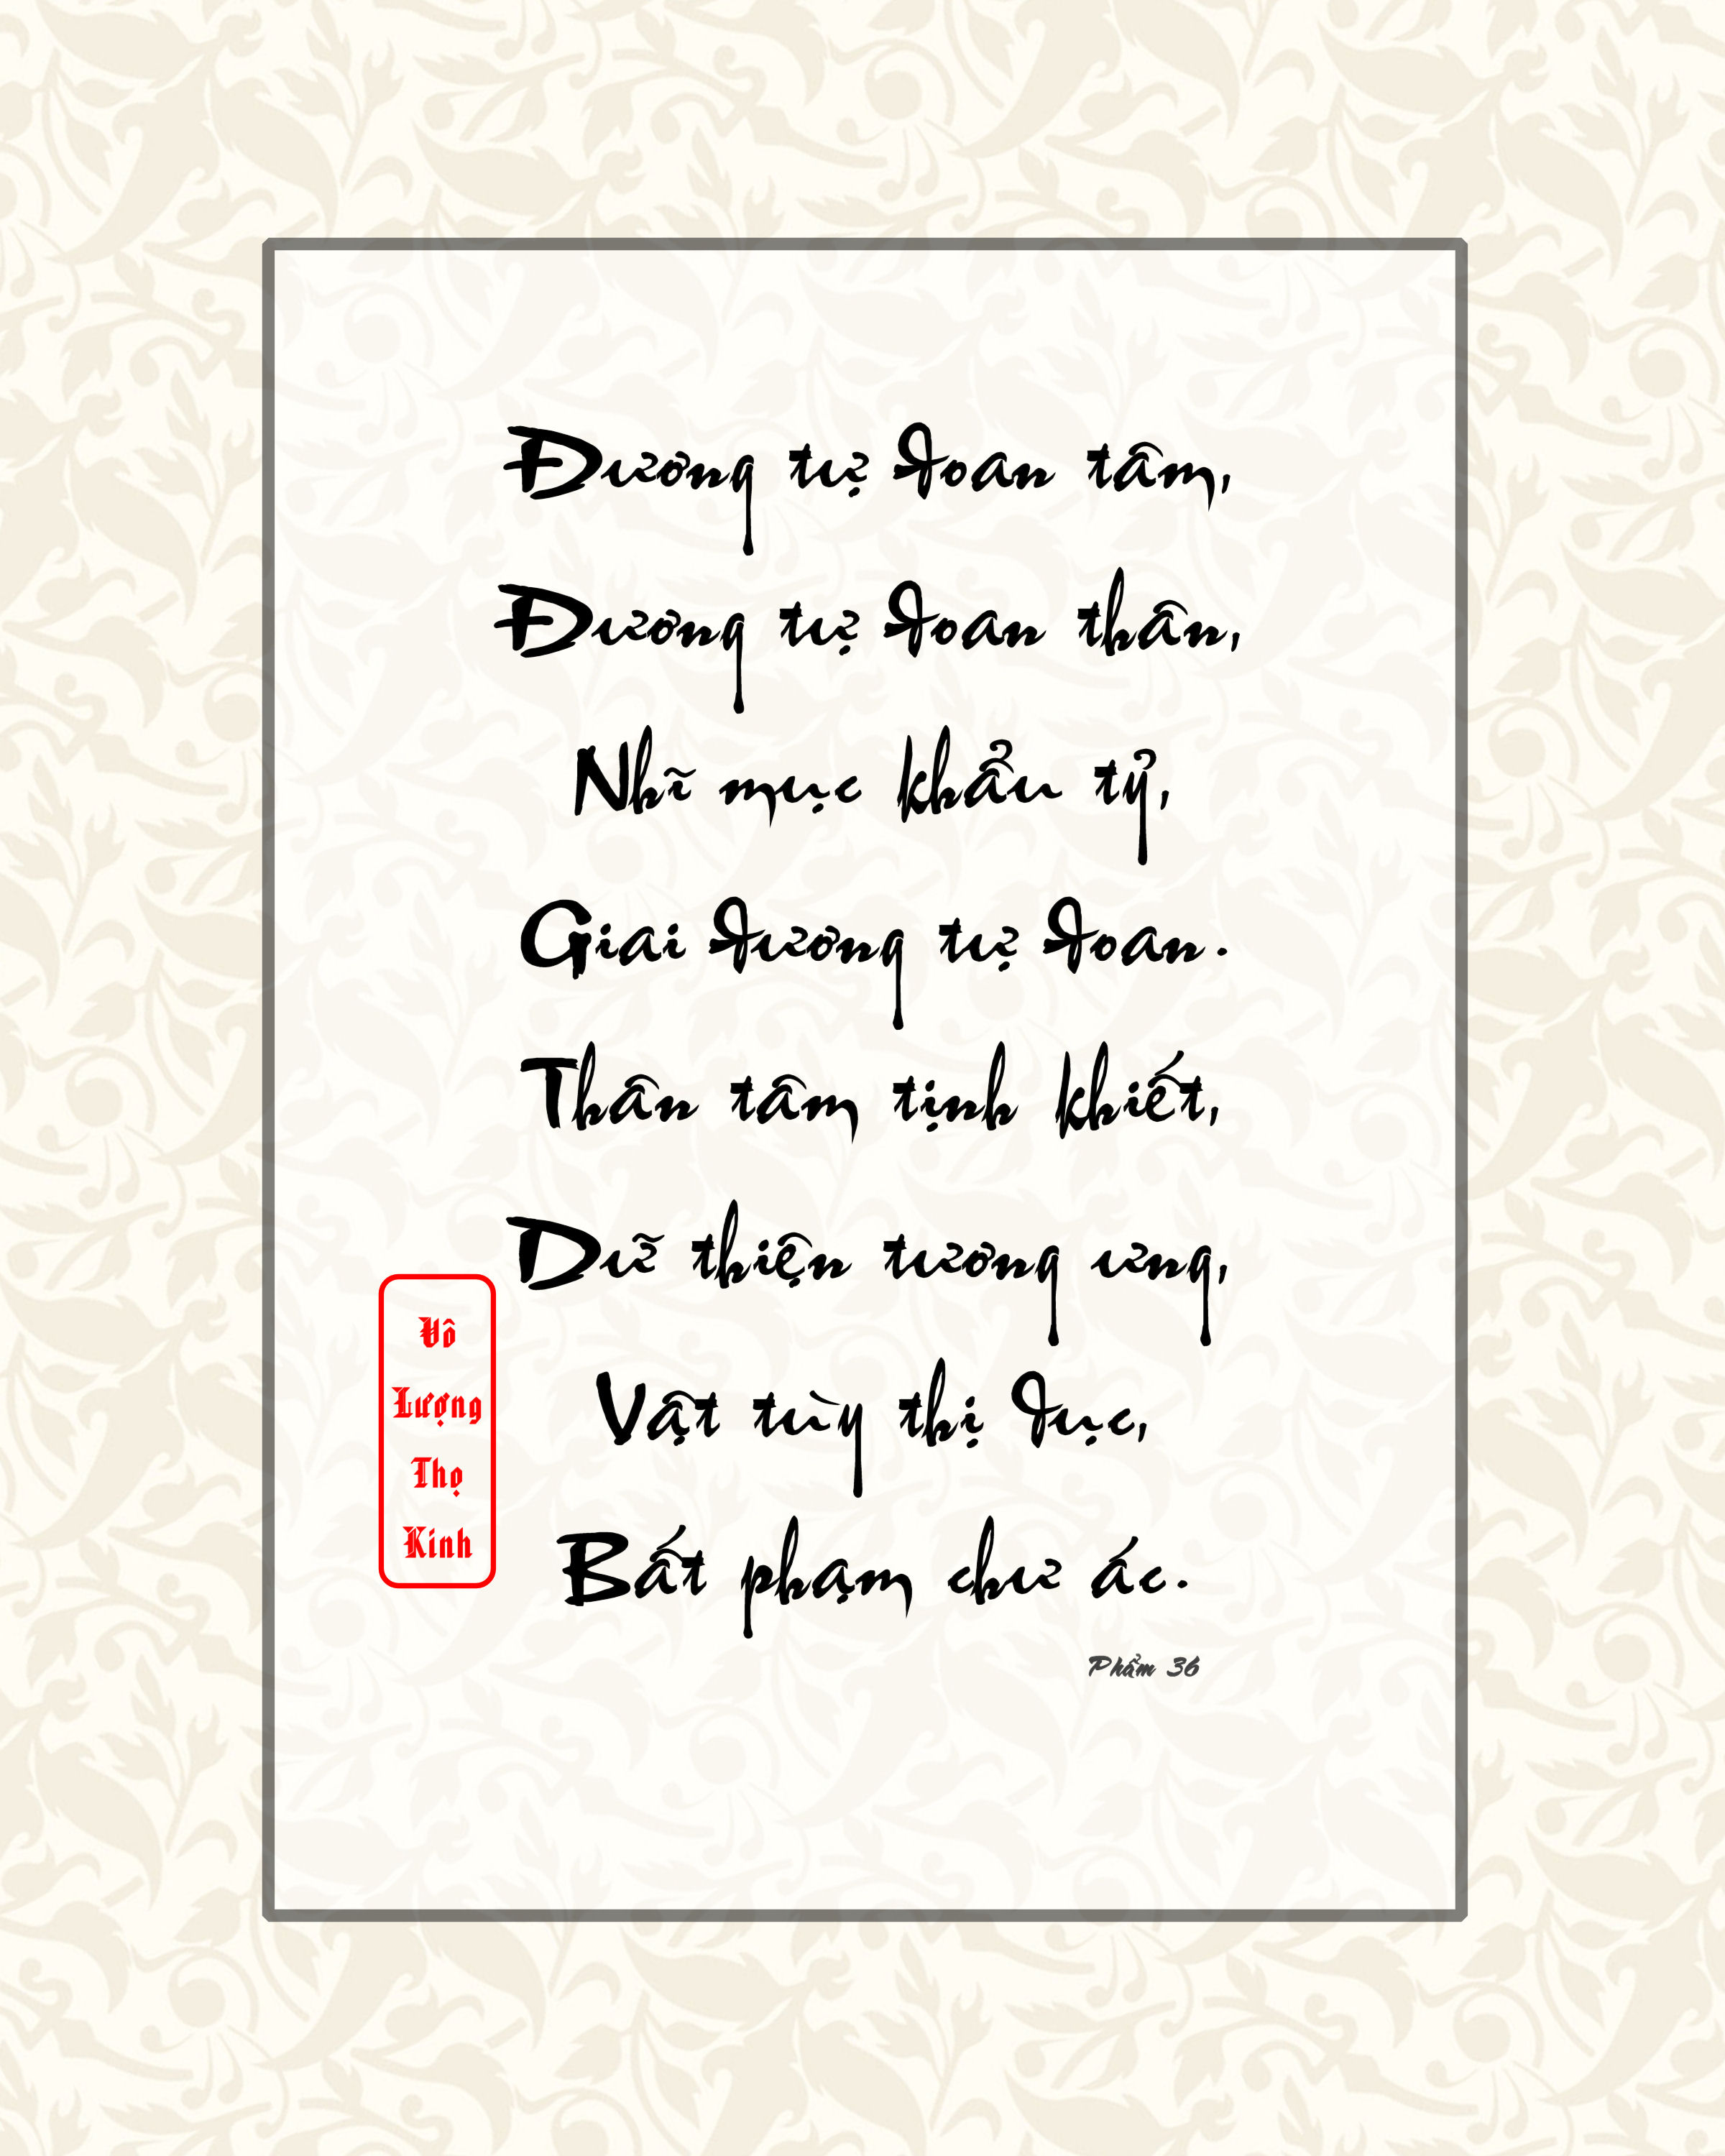 Đương tự đoan tâm,
Đương tự đoan thân,
Nhĩ mục khẩu tỷ,
Giai đương tự đoan.
Thân tâm tịnh khiết,
Dữ thiện tương ưng,
Vật tùy thị dục,
Bất phạm chư ác.
Phẩm 36
Vô
Lượng
Thọ
Kinh